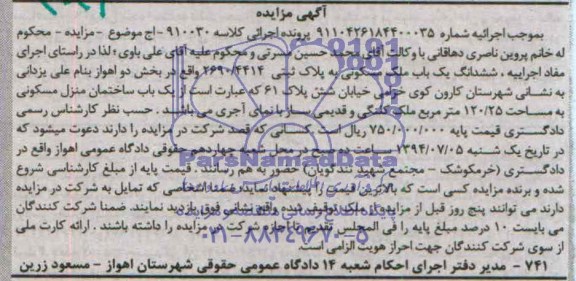 آگهی مزایده
بموجب اجرائیه شماره ۹۱۱۰۴۲۶۱۸۴۴۰۰۰۳۵ پرونده اجرائی کلاسه ۹۱۰۰۳۰ -اج موضوع - مزایده - محکوم
له خانم پروین ناصری دهاقانی با وکالت آقای محمد حسین نصرتی و محکوم علیه آقای علی باوی ؛ لذا در راستای اجرای
مفاد اجراییه ، ششدانگ یک باب ملک مسکونی به پلاک ثبتی ۲۶۹۰/۴۴۱۴ واقع در بخش دو اهواز بنام علی یزدانی
به نشانی شهرستان کارون کوی خزامی خیابان شش پلاک ۶۱ که عبارت است از یک باب ساختمان منزل مسکونی
به مساحت ۱۲۰/۲۵ متر مربع ملک کلنگی و قدیمی ساز با نمای آجری می باشد . حسب نظر کارشناس رسمی
دادگستری قیمت پایه ۷۵۰/۰۰۰/۰۰۰ ریال است . کسانی که قصد شرکت در مزایده را دارند دعوت میشود که
در تاریخ یک شنبه ۱۳۹۴/۰۷/۰۵ ساعت ده صبح در محل شعبه چهاردهم حقوقی دادگاه عمومی اهواز واقع در
دادگستری (خرمکوشک - مجتمع شهید تندگویان) حضور به هم رسانند . قیمت پایه از مبلغ کارشناسی شروع
و برنده مزایده کسی است که بالاترین قیمت را پیشنهاد نماید ضمنا اشخاصی که تمایل به شرکت در مزایده
دارند می توانند پنج روز قبل از مزایده از ملک توقیف شده واقع نشانی فوق بازدید نمایند. ضمنا شرکت کنندگان
می بایست ۱۰ درصد مبلغ پایه را فی المجلس تقدیم تا اجازه شرکت در مزایده را داشته باشند . ارائه کارت ملی
از سوی شرکت کنندگان جهت احراز هویت الزامی است
۷۴۱ - مدیر دفتر اجرای احکام شعبه ۱۴ دادگاه عمومی حقوقی شهرستان اهواز - مسعود زرین
ParsNamadData
۰۲۱-۸۸۳۴۹۶۷۰-۵